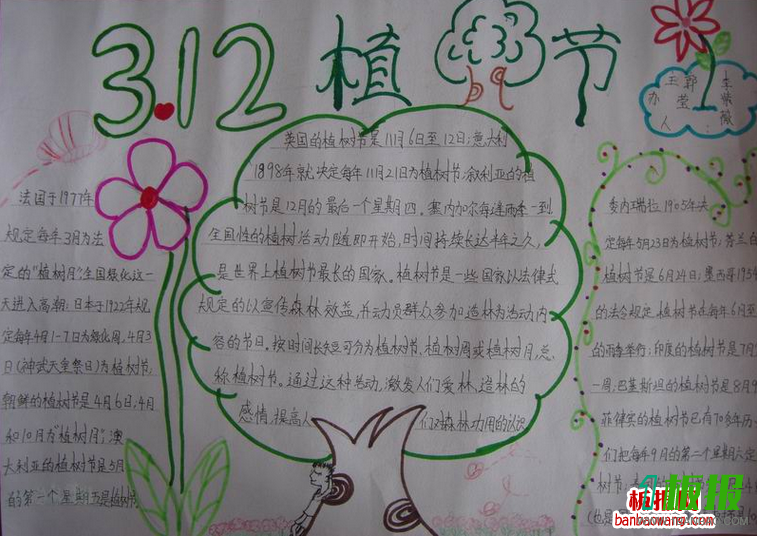 3.12 植 节
主办人
郭莹
李紫薇
法国于1977年
规定每年3月为法
定的"植树月"全国绿化这一
天进入高潮;日本于1922年规
定每年4月1-7日为绿化周,4月3
日(神武天皇祭日)为植树节;
朝鲜的植树节是4月6日;4月
和10月为"植树月";澳
大利亚的植树节是5月
的第一个星期五是植树节
英国的植树节是11月6日至12日;意大利
1898年就决定每年11月21日为植树节;叙利亚的植
树节是12月的最后一个星期四。塞内加尔每逢雨季一到
全国性的植树活动随即开始,时间持续长达半年之久,
是世界上植树节最长的国家。植树节是一些国家以法律式
规定的以宣传森林效益,并动员群众参加造林为活动内
容的节日。按时间长短可分为植树节,植树周或植树月,总
称植树节。通过这种活动,激发人们爱林、造林的
感情,提高人们对森林功用的认识
委内瑞拉1905年决
定每年5月23日为植树节;芬兰的
植树节是6月24日;墨西哥195
的法令规定,植树节在每年6月至
的雨季举行;印度的植树节是7月
一周,巴基斯坦的植树节是8月9
菲律宾的植树节已有70多年历
们把每年9月的第二个星期六定
树节
板报网
banbaowang.com
板报